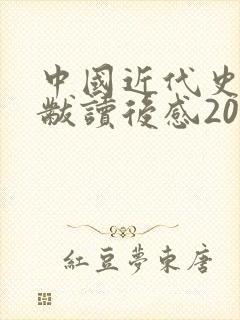 中國近代史
黻讀後感20
紅豆夢東唐